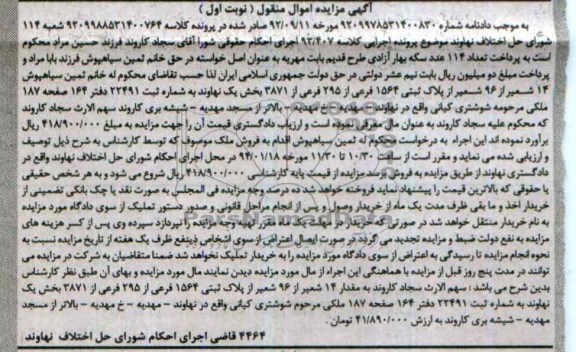 آگهی مزایده اموال منقول ( نوبت اول )
به موجب دادنامه شماره ۹۲۰۹۹۷۸۵۳۱۴۰۰۸۳۰ مورخه ۹۲/۰۹/۱۱ صادر شده در پرونده کلاسه ۹۲۰۹۹۸۸۵۳۱۴۰۰۷۶۴ شعبه ۱۱۴
شورای حل اختلاف نهاوند موضوع پرونده اجرایی کلاسه ۹۳/۴۰۷ اجرای احکام حقوقی شورا آقای سجاد کاروند فرزند حسین مراد محکوم
است به پرداخت تعداد ۱۱۴ عدد سکه بهار آزادی طرح قدیم بابت مهریه به عنوان اصل خواسته در حق خانم ثمین سیاهپوش فرزند بابا مراد و
پرداخت مبلغ دو میلیون ریال بابت نیم عشر دولتی در حق دولت جمهوری اسلامی ایران لذا حسب تقاضای محکوم له خانم ثمین سیاهپوش
۱۴ شعیر از ۹۶ شعیر از پلاک ثبتی ۱۵۶۴ فرعی از ۲۹۵ فرعی از ۳۸۷۱ بخش یک نهاوند به شماره ثبت ۲۲۴۹۱ دفتر ۱۶۴ صفحه ۱۸۷
ملکی مرحومه شوشتری کیانی واقع در نهاوند – مهدیه – خ مهدیه – بالاتر از مسجد مهدیه – شیشه بری کاروند سهم الارث سجاد کاروند
که محکوم علیه سجاد کاروند به عنوان مال معرفی نموده است و ارزیاب دادگستری قیمت آن را جهت مزایده به مبلغ ۴۱۸/۹۰۰/۰۰۰ ریال
برآورد نموده اند این اجراء به درخواست محکوم له ثمین سیاهپوش اقدام به فروش ملک موسوف که توسط کارشناس به شرح ذیل توصیف
و ارزیابی شده می نماید و مقرر است از ساعت ۱۰/۳۰ تا ۱۱/۳۰ مورخ ۹۴/۰۱/۱۸ در محل اجرای احکام شورای حل اختلاف نهاوند واقع در
دادگستری نهاوند از طریق مزایده به فروش برسد مزایده از قیمت پایه کارشناسی ۴۱۸/۹۰۰/۰۰۰ ریال شروع می شود و به هر شخص حقیقی
یا حقوقی که بالاترین قیمت را پیشنهاد نماید فروخته خواهد شد ده درصد وجه مزایده فی المجلس به صورت نقد یا چک بانکی تضمینی از
خریدار اخذ و ما بقی ظرف مدت یک ماه از خریدار وصول و پس از انجام مراحل قانونی و صدور دستور تملیک از سوی دادگاه مورد مزایده
به نام خریدار منتقل خواهد شد در صورتی که خریدار در مهلت یک ماه مقرر بهیه وجه مزایده را نپردازد سپرده وی پس از کسر هزینه های
مزایده به نفع دولت ضبط و مزایده تجدید می گردد در صورت ایصال اعتراض از سوی اشخاص ذینفع ظرف یک هفته از تاریخ مزایده نسبت به
نحوه انجام مزایده تا رسیدگی به اعتراض از سوی دادگاه مورد مزایده را به خریدار تملیک نخواهد شد ضمنا متقاضیان به شرکت در مزایده می
توانند در مدت پنج روز قبل از مزایده با هماهنگی این اجراء از مال مورد مزایده دیدن نمایند مال مورد مزایده و بهای آن طبق نظر کارشناس
بدین شرح می باشد : سهم الارث سجاد کاروند به مقدار ۱۴ شعیر از ۹۶ شعیر از پلاک ثبتی ۱۵۶۴ فرعی از ۲۹۵ فرعی از ۳۸۷۱ بخش یک
نهاوند به شماره ثبت ۲۲۴۹۱ دفتر ۱۶۴ صفحه ۱۸۷ ملکی مرحوم شوشتری کیانی واقع در نهاوند – مهدیه – خ مهدیه – بالاتر از مسجد
مهدیه – شیشه بری کاروند به ارزش ۴۱/۸۹۰/۰۰۰ تومان .
۴۴۶۴ قاضی اجرای احکام شورای حل اختلاف نهاوند